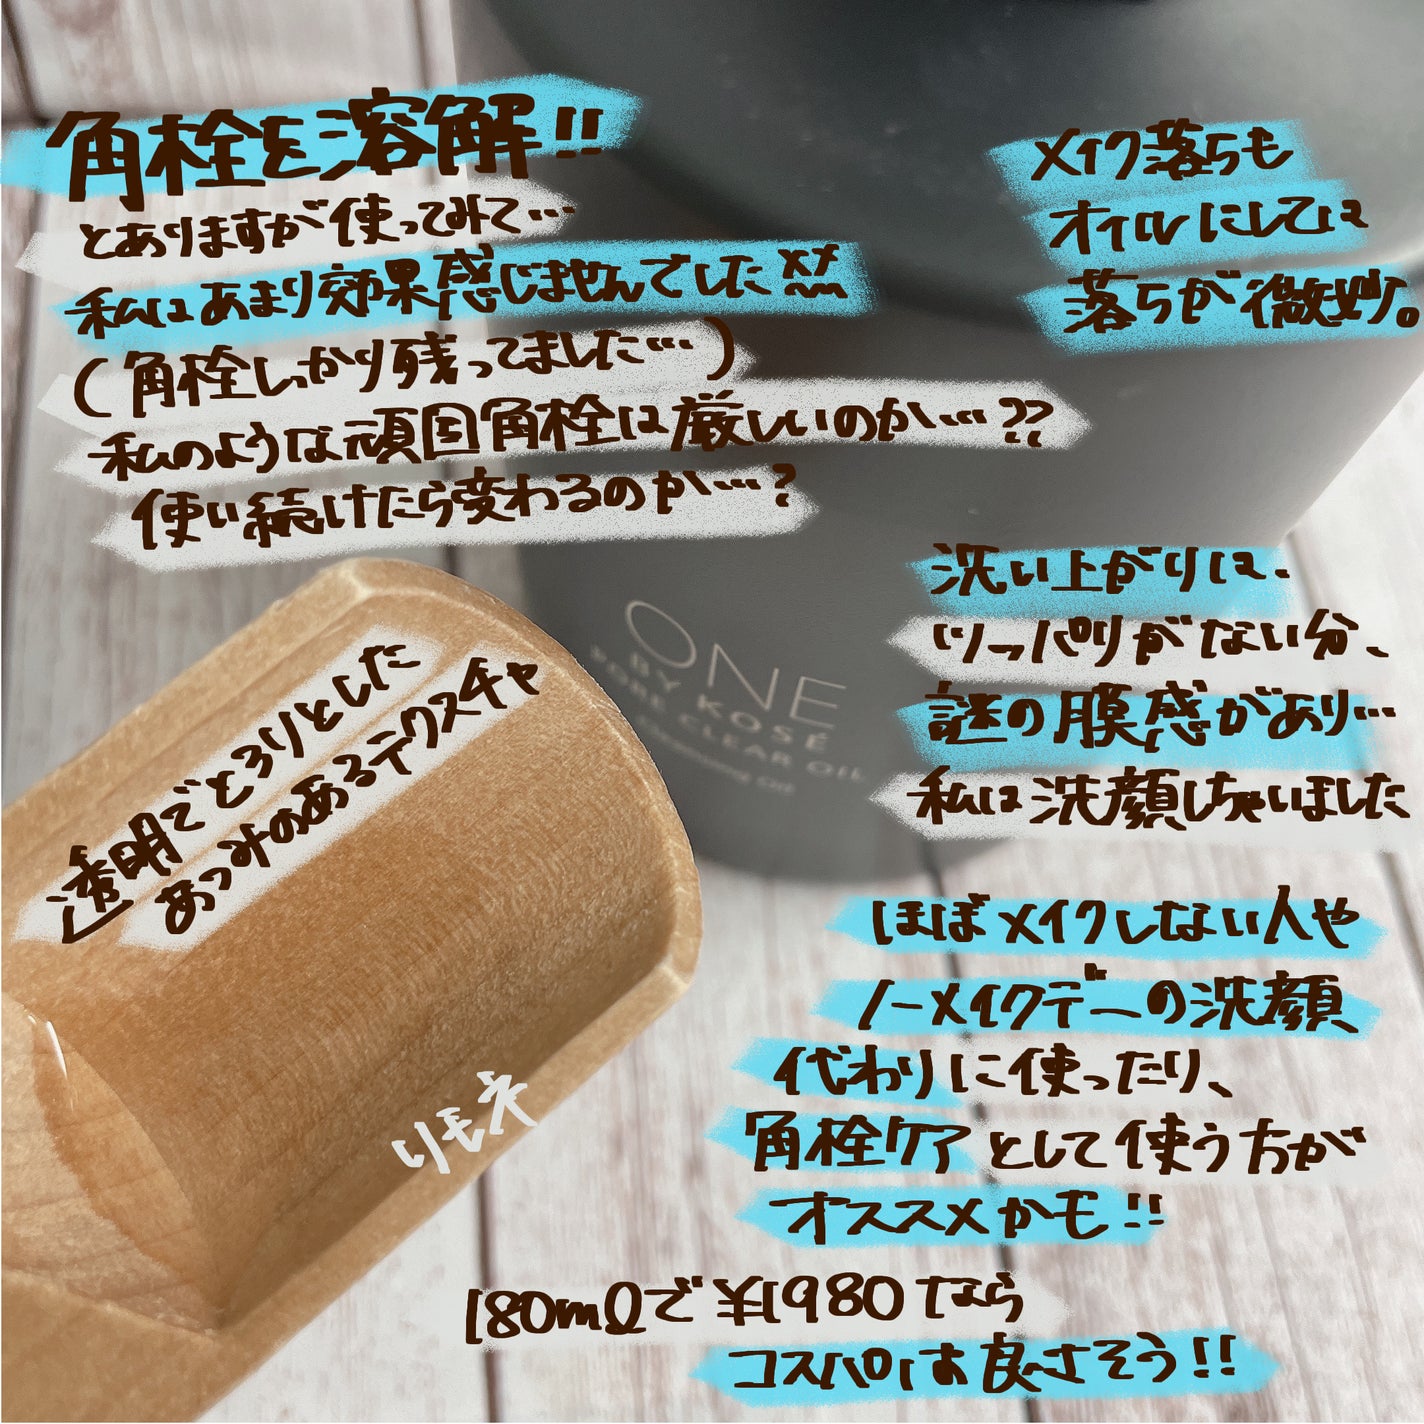 角栓を溶解!!
とありますが使ってみて…
私はあまり効果感じませんでした
(角栓しっかり残ってました…)
私のような頑固角栓は厳しいのか…??
使い続けたら変わるのか…?
メイク落ちも
オイルにしては
落ちが微妙。
洗い上がりは、
ツッパリがない分、
謎の膜感があり…
私は洗顔しちゃいました
ONE
BY KOSÉ
PORE CLEAR OIL
Cleansing Oil
透明でとろりとした
あつみのあるテクスチャ
ほぼメイクしない人や
ノーメイクデーの洗顔
代わりに使ったり、
角栓ケアとして使う方が
オススメかも!!
リモネ
180mlで¥1980なら
コスパは良さそう!!